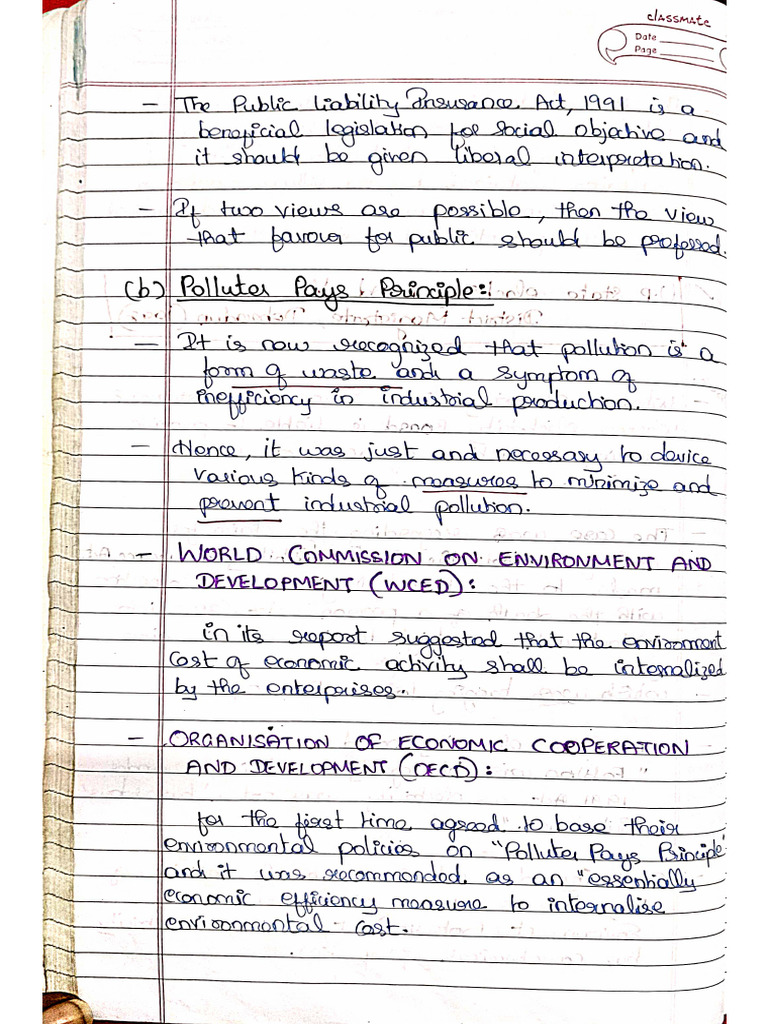 classmate
Date
Page
- The Public Liability Insurance Act, 1991 is a
beneficial legislation for social objective and
it should be given liberal interpretation.
- If two views are possible, then the view
that favour for public should be preferred.
(b) Polluter Pays Principle:
- It is now recognized that pollution is a
form of waste and a symptom of
inefficiency in industrial production.
- Hence, it was just and necessary to device
various kinds of measures to minimize and
prevent industrial pollution.
- WORLD COMMISSION ON ENVIRONMENT AND
DEVELOPMENT (WCED):
in its report suggested that the environment
cost of economic activity shall be internalized
by the enterprises.
- ORGANISATION OF ECONOMIC COOPERATION
AND DEVELOPMENT (OECD):
for the first time agreed to base their
environmental policies on "Polluter Pays Principle"
and it was recommended as an "essentially
economic efficiency measure to internalise
environmental cost.